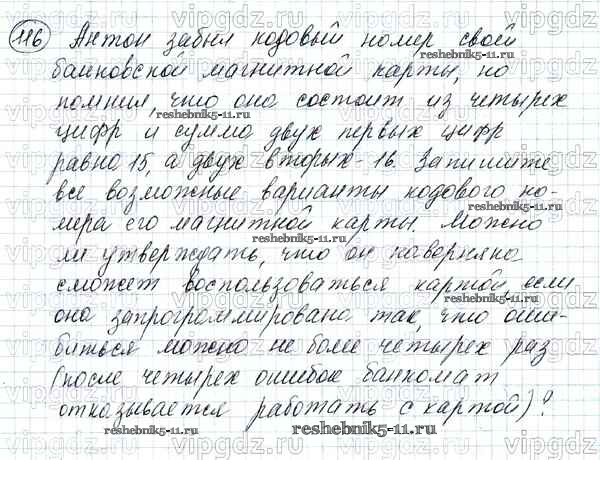 vipgdz vipgdz.ru vipgdz.ru vipgdz.ru
116 Антон забыл кодовый номер своей
reshebnik5-11.ru
банковской магнитной карты, но
помнил, что она состоит из четырех
reshebnik5-11.ru
цифр и сумма двух первых цифр
равна 15, а двух вторых - 16. Запишите
все возможные варианты кодового но-
reshebnik5-11.ru
мера его магнитной карты. Можно
reshebnik5-11.ru
ли утверждать, что он наверняка
сможет воспользоваться картой, если
reshebnik5-11.ru
она запрограммирована так, что оши-
биться можно не более четырех раз
reshebnik5-11.ru
(после четырех ошибок банкомат
отказывается работать с картой)?
reshebnik5-11.ru
reshebnik5-11.ru